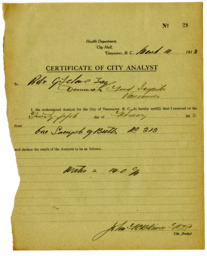 No 28
Health Department,
City Hall,
Vancouver, B. C., March 11 191
CERTIFICATE OF CITY ANALYST
To
Dominion Food Inspector
Vancouver
I, the undersigned Analyst for the City of Vancouver, B. C., do hereby certify that I received on the
Twenty fifth day of February 191
from
One Sample of Butter No 212
and declare the result of the Analysis to be as follows:
Water = 14.0 %
City Analyst